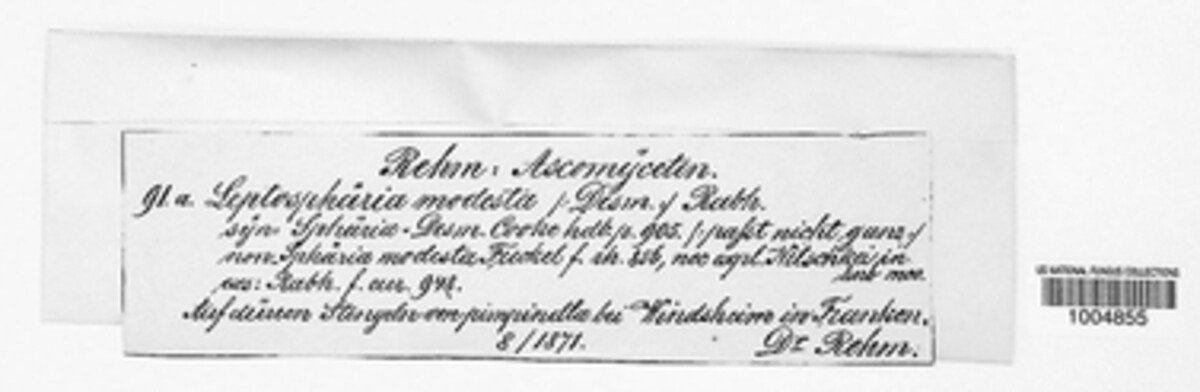 Rehm: Ascomÿceten.
91 a. Leptosphäria modesta /: Desm. :/ Rabh.
sÿn. Sphäria - Desm. Cooke hdb. p. 905. /: paßt nicht ganz :/
non Sphäria modesta Fuckel f. rh. nec agrl. Nitschkei, in
exs: Rabh. f. eur.
Auf dürren Stengeln von pimpinella bei Windsheim in Franken.
8/1871.
Dr Rehm.
US NATIONAL FUNGUS COLLECTIONS
1004855